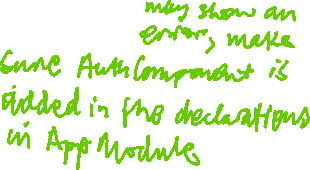 may show an
error, make
sure AuthComponent is
added in the declarations
in App Module